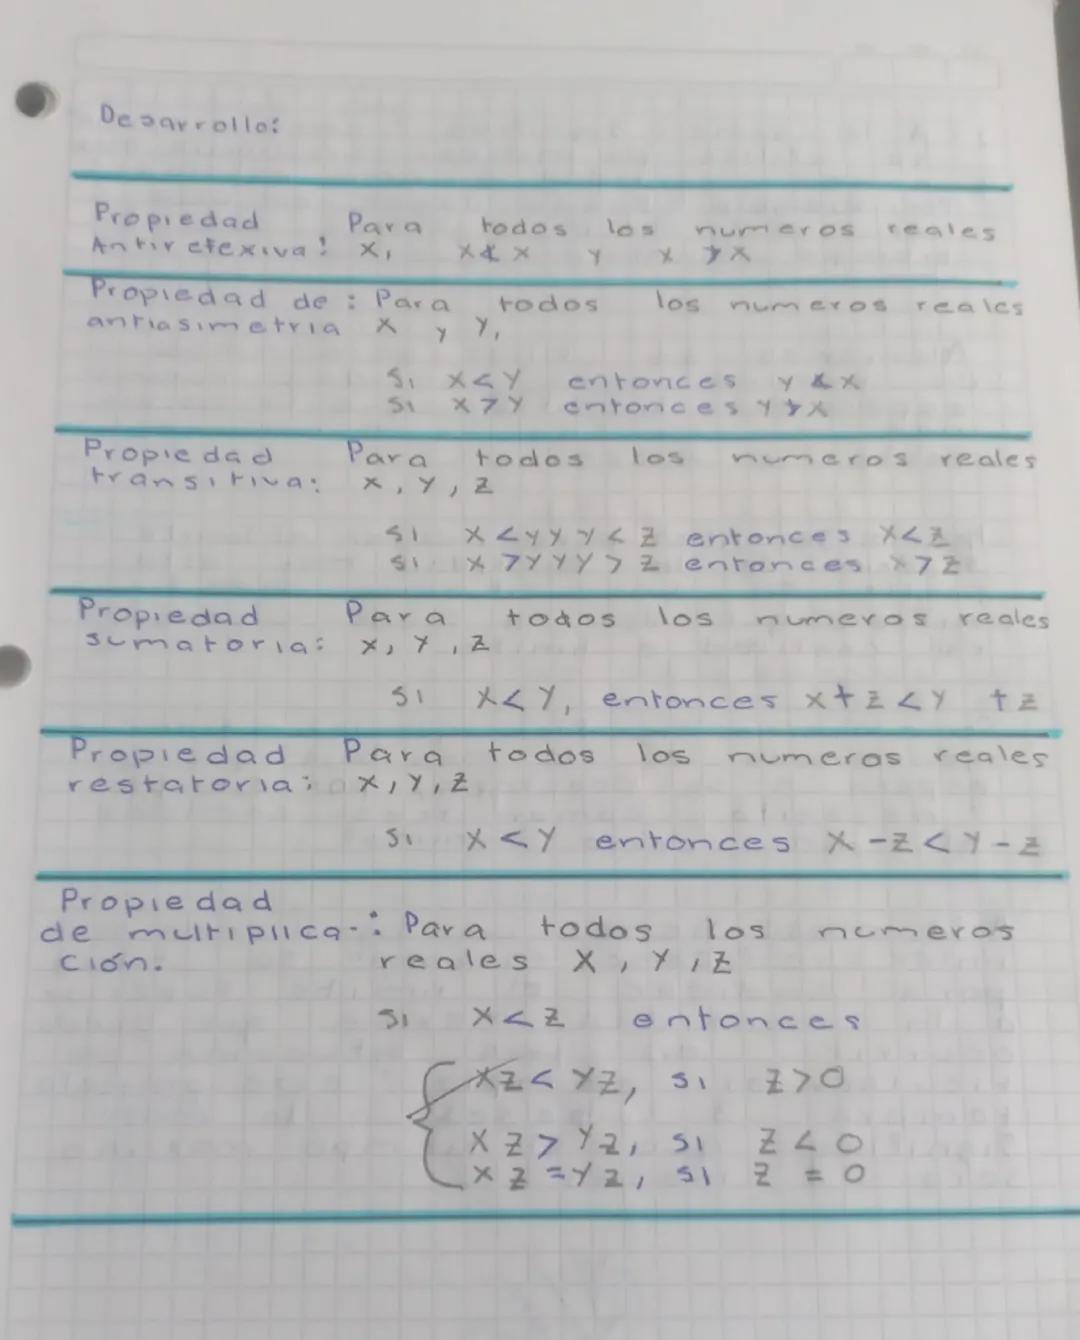 Desarrollo:
Propiedad Para todos los numeros reales
Antirefexiva: x, x≮x y x≯x
Propiedad de : Para todos los numeros reales
antiasimetria x y y,
Si x<y entonces y≮x
Si x>y entonces y≯x
Propiedad Para todos los numeros reales
transitiva: x, y, z
si x<y y y<z entonces x<z
si x>y y y>z entonces x>z
Propiedad Para todos los numeros reales
sumatoria: x, y, z
si x<y, entonces x+z<y +z
Propiedad Para todos los numeros reales
restatoria: x, y, z
si x<y entonces x-z<y-z
Propiedad
de multiplica-: Para todos los numeros
ción. reales x, y, z
si x<z entonces
xz<yz, si z>0
xz>yz, si z<0
xz=yz, si z=0